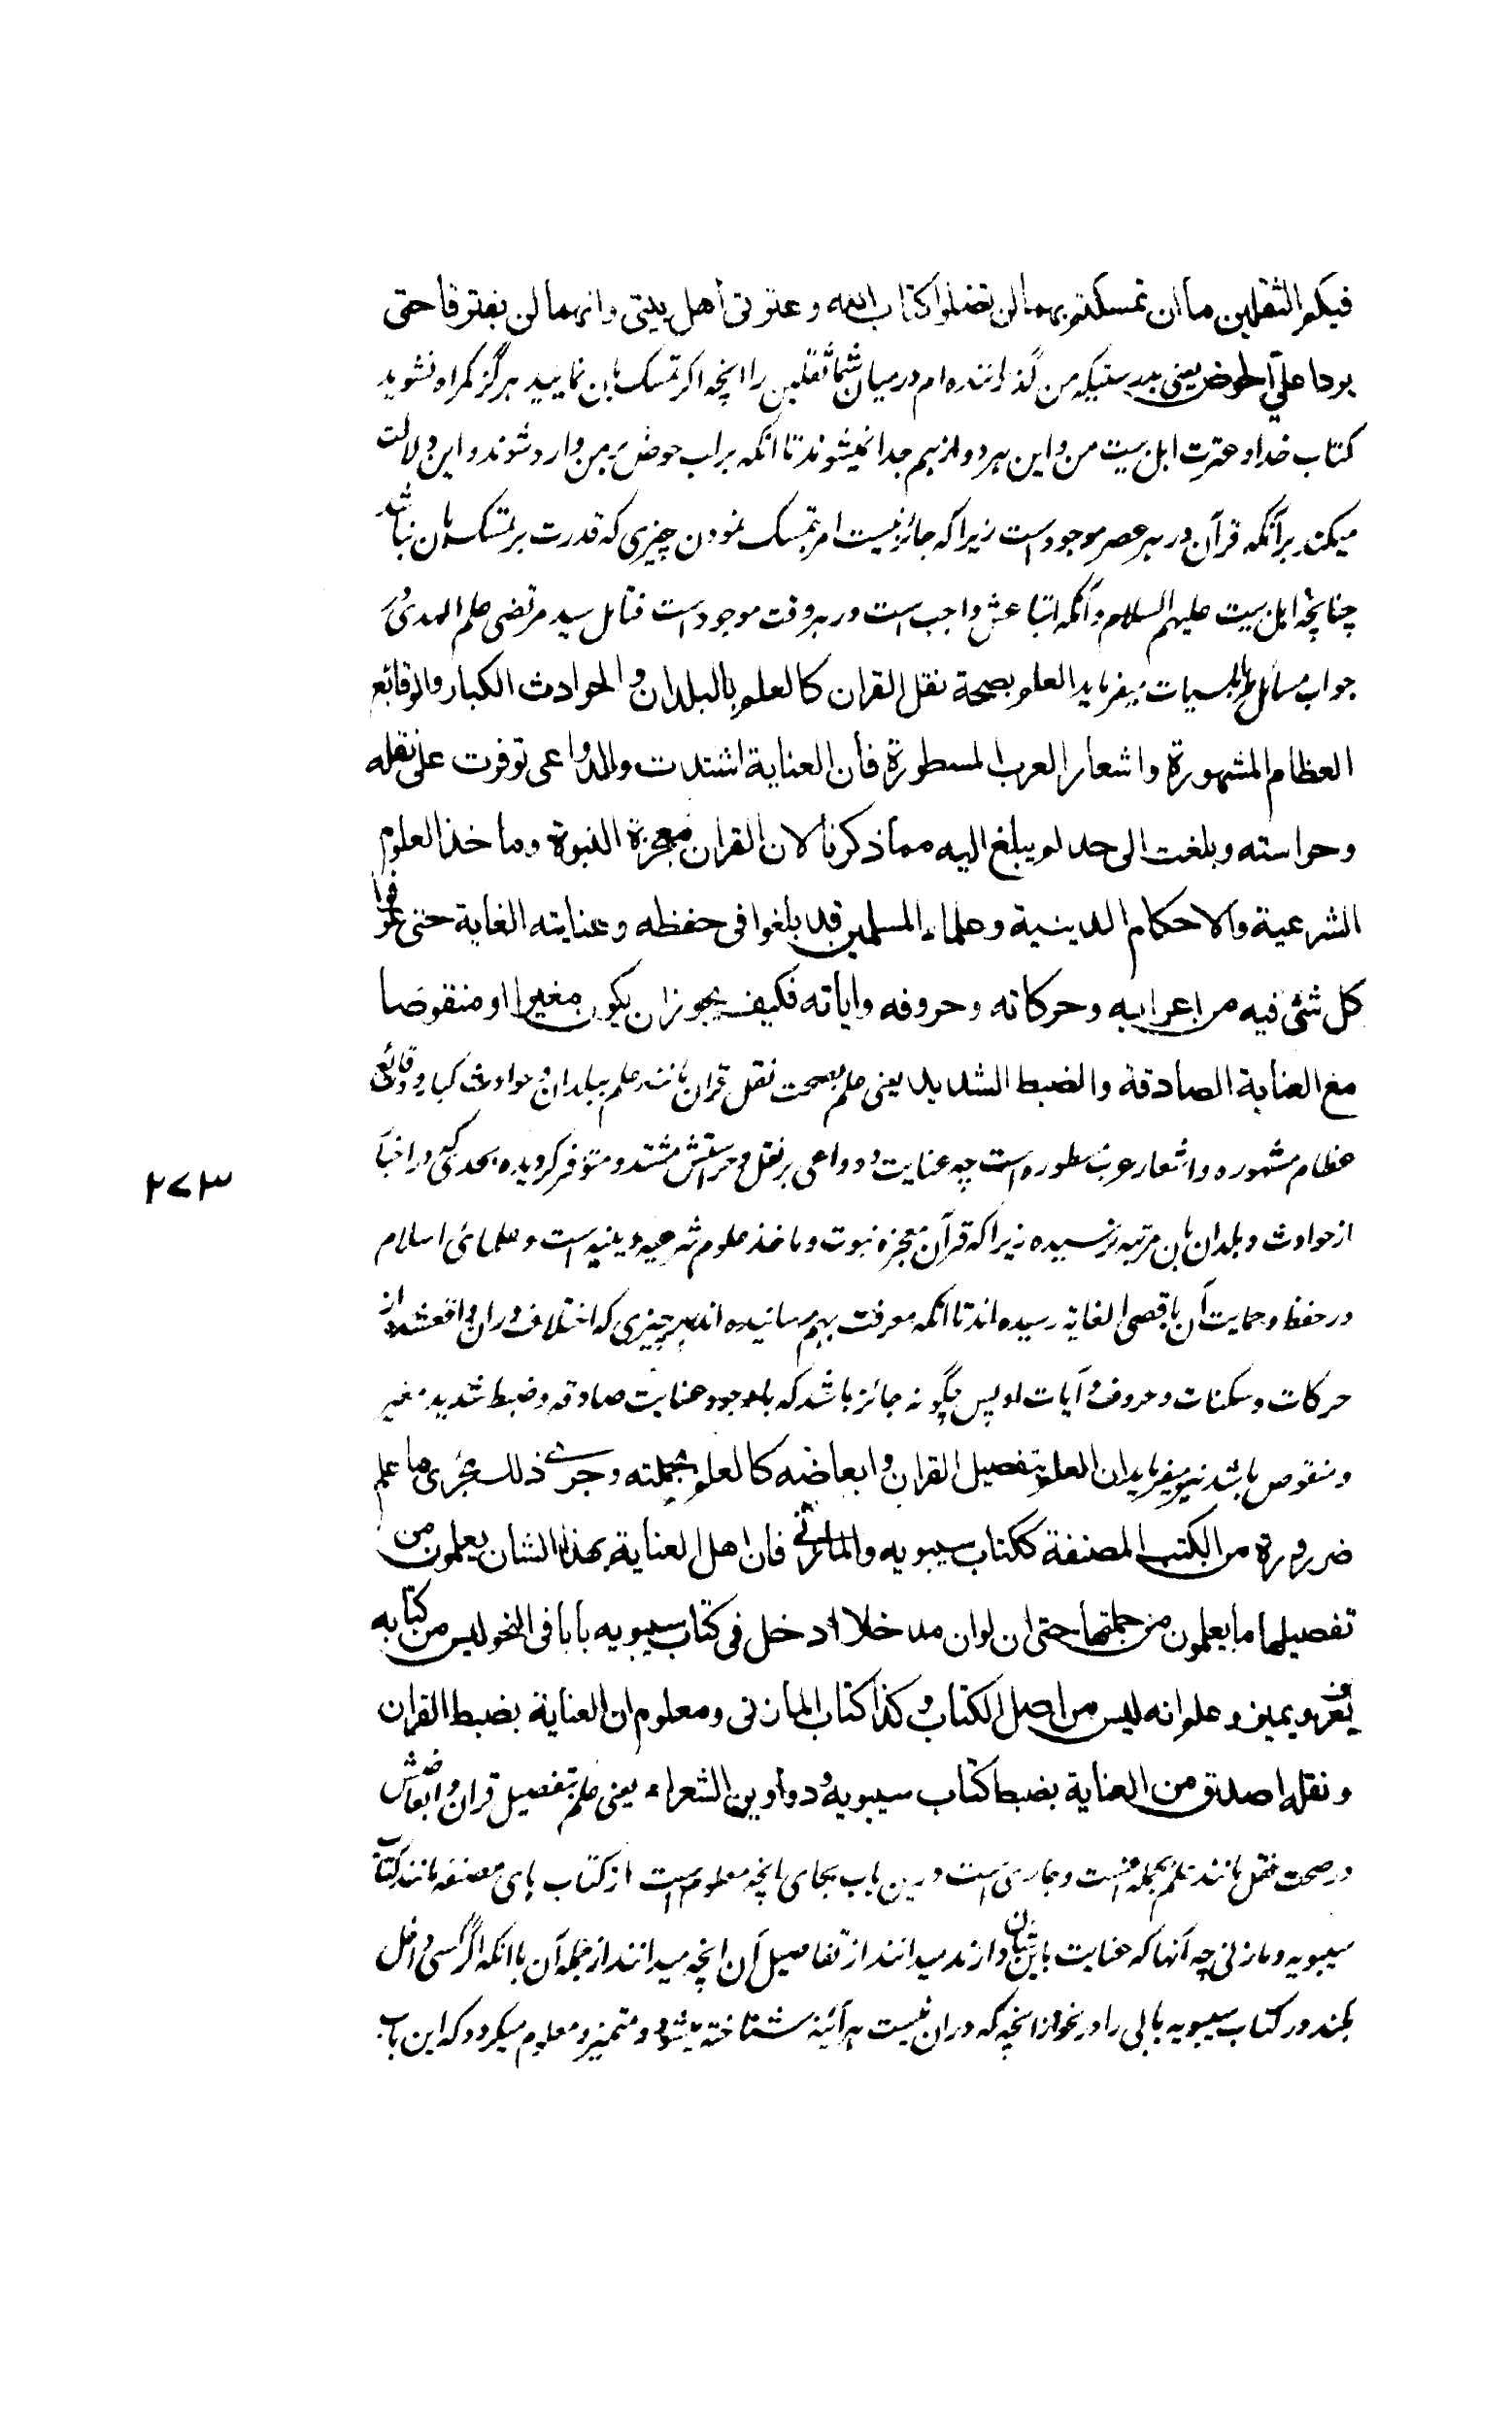 فیکم الثقلین ما ان تمسکتم بهما لن تضلوا کتاب الله و عترتی أهل بیتی وانهما لن یفترقا حتی
یردا علیّ الحوض یعنی بدرستیکه من گذارنده ام درمیان شما ثقلین را انچه اکر تمسک بان نمایید هرگز گمراه نشوید
کتاب خدا و عترت اهل بیت من و این هر دو از هم جدا نمیشوند تا انکه بر لب حوض بر من وارد شوند و این دلالت
میکند برآنکه قرآن در هر عصر موجود است زیرا که جائز نیست امر بتمسک نمودن چیزی که قدرت بر تمسک بان نباشد
چنانچه اهل بیت علیهم السلام و آنکه اتباعش واجب است در هر وقت موجود است فتامل سید مرتضی علم الهدی در
جواب مسائل طرابلسیات میفرماید العلم بصحة نقل القران کالعلم بالبلدان و الحوادث الکبار والوقائع
العظام المشهورة واشعار العرب المسطورة فان العنایة اشتدت والدواعی توفرت علی نقله
وحراسته وبلغت الی حد لم یبلغ الیه مما ذکرنا لان القران معجزة النبوة وماخذ العلوم
الشرعیة والاحکام الدینیة وعلماء المسلمین قد بلغوا فی حفظه وعنایته الغایة حتی عرفوا
کل شئ فیه من اعرابه وحرکاته وحروفه وایاته فکیف یجوز ان یکون مغیرا او منقوصا
مع العنایة الصادقة والضبط الشدید یعنی علم بصحت نقل قران مانند علم ببلدان و حوادث کبار و وقائع
عظام مشهوره و اشعار عرب مسطوره است چه عنایت و دواعی بر نقل و حراستش مشتد و متوفر کردیده بحدی که در اخبار
از حوادث و بلدان بان مرتبه نرسیده زیرا که قرآن معجزه نبوت و ماخذ علوم شرعیه و دینیه است و علمائی اسلام
در حفظ و حمایت آن باقصی الغایه رسیده اند تا انکه معرفت بهم رسانیده اند بهر چیزی که اختلاف دران واقعشده از
حرکات و سکنات و حروف و آیات او پس چگونه جائز باشد که باوجود عنایت صادقه و ضبط شدید مغیر
و منقوص باشد نیز میفرماید ان العلم بتفصیل القران و ابعاضه کالعلم بجملته وجری ذلک مجری ما علم
ضرورة من الکتب المصنفة ککتاب سیبویه والمازنی فان اهل العنایة بهذا الشان یعلمون من
تفصیلها ما یعلمون من جملتها حتی ان لوان مدخلا ادخل فی کتاب سیبویه بابا فی النحو لیس من کتابه
یعرف ویمیز وعلم انه لیس من اصل الکتاب وکذا کتاب المازنی ومعلوم ان العنایة بضبط القران
ونقله اصدق من العنایة بضبط کتاب سیبویه و دواوین الشعراء یعنی علم بتفصیل قران و ابعاضش
در صحت نقل مانند علم بجمله است و جاریست درین باب بجای انچه معلوم است از کتاب های مصنفه مانند کتاب
سیبویه و مازنی چه آنها که عنایت باین شان دارند میدانند از تفاصیل آن انچه میدانند از جمله آن باانکه اگر کسی داخل
بکند در کتاب سیبویه بابی را در نحو از انچه که دران نیست هر آئینه شناخته میشود و متمیز و معلوم میکردد که این باب
۲۷۳